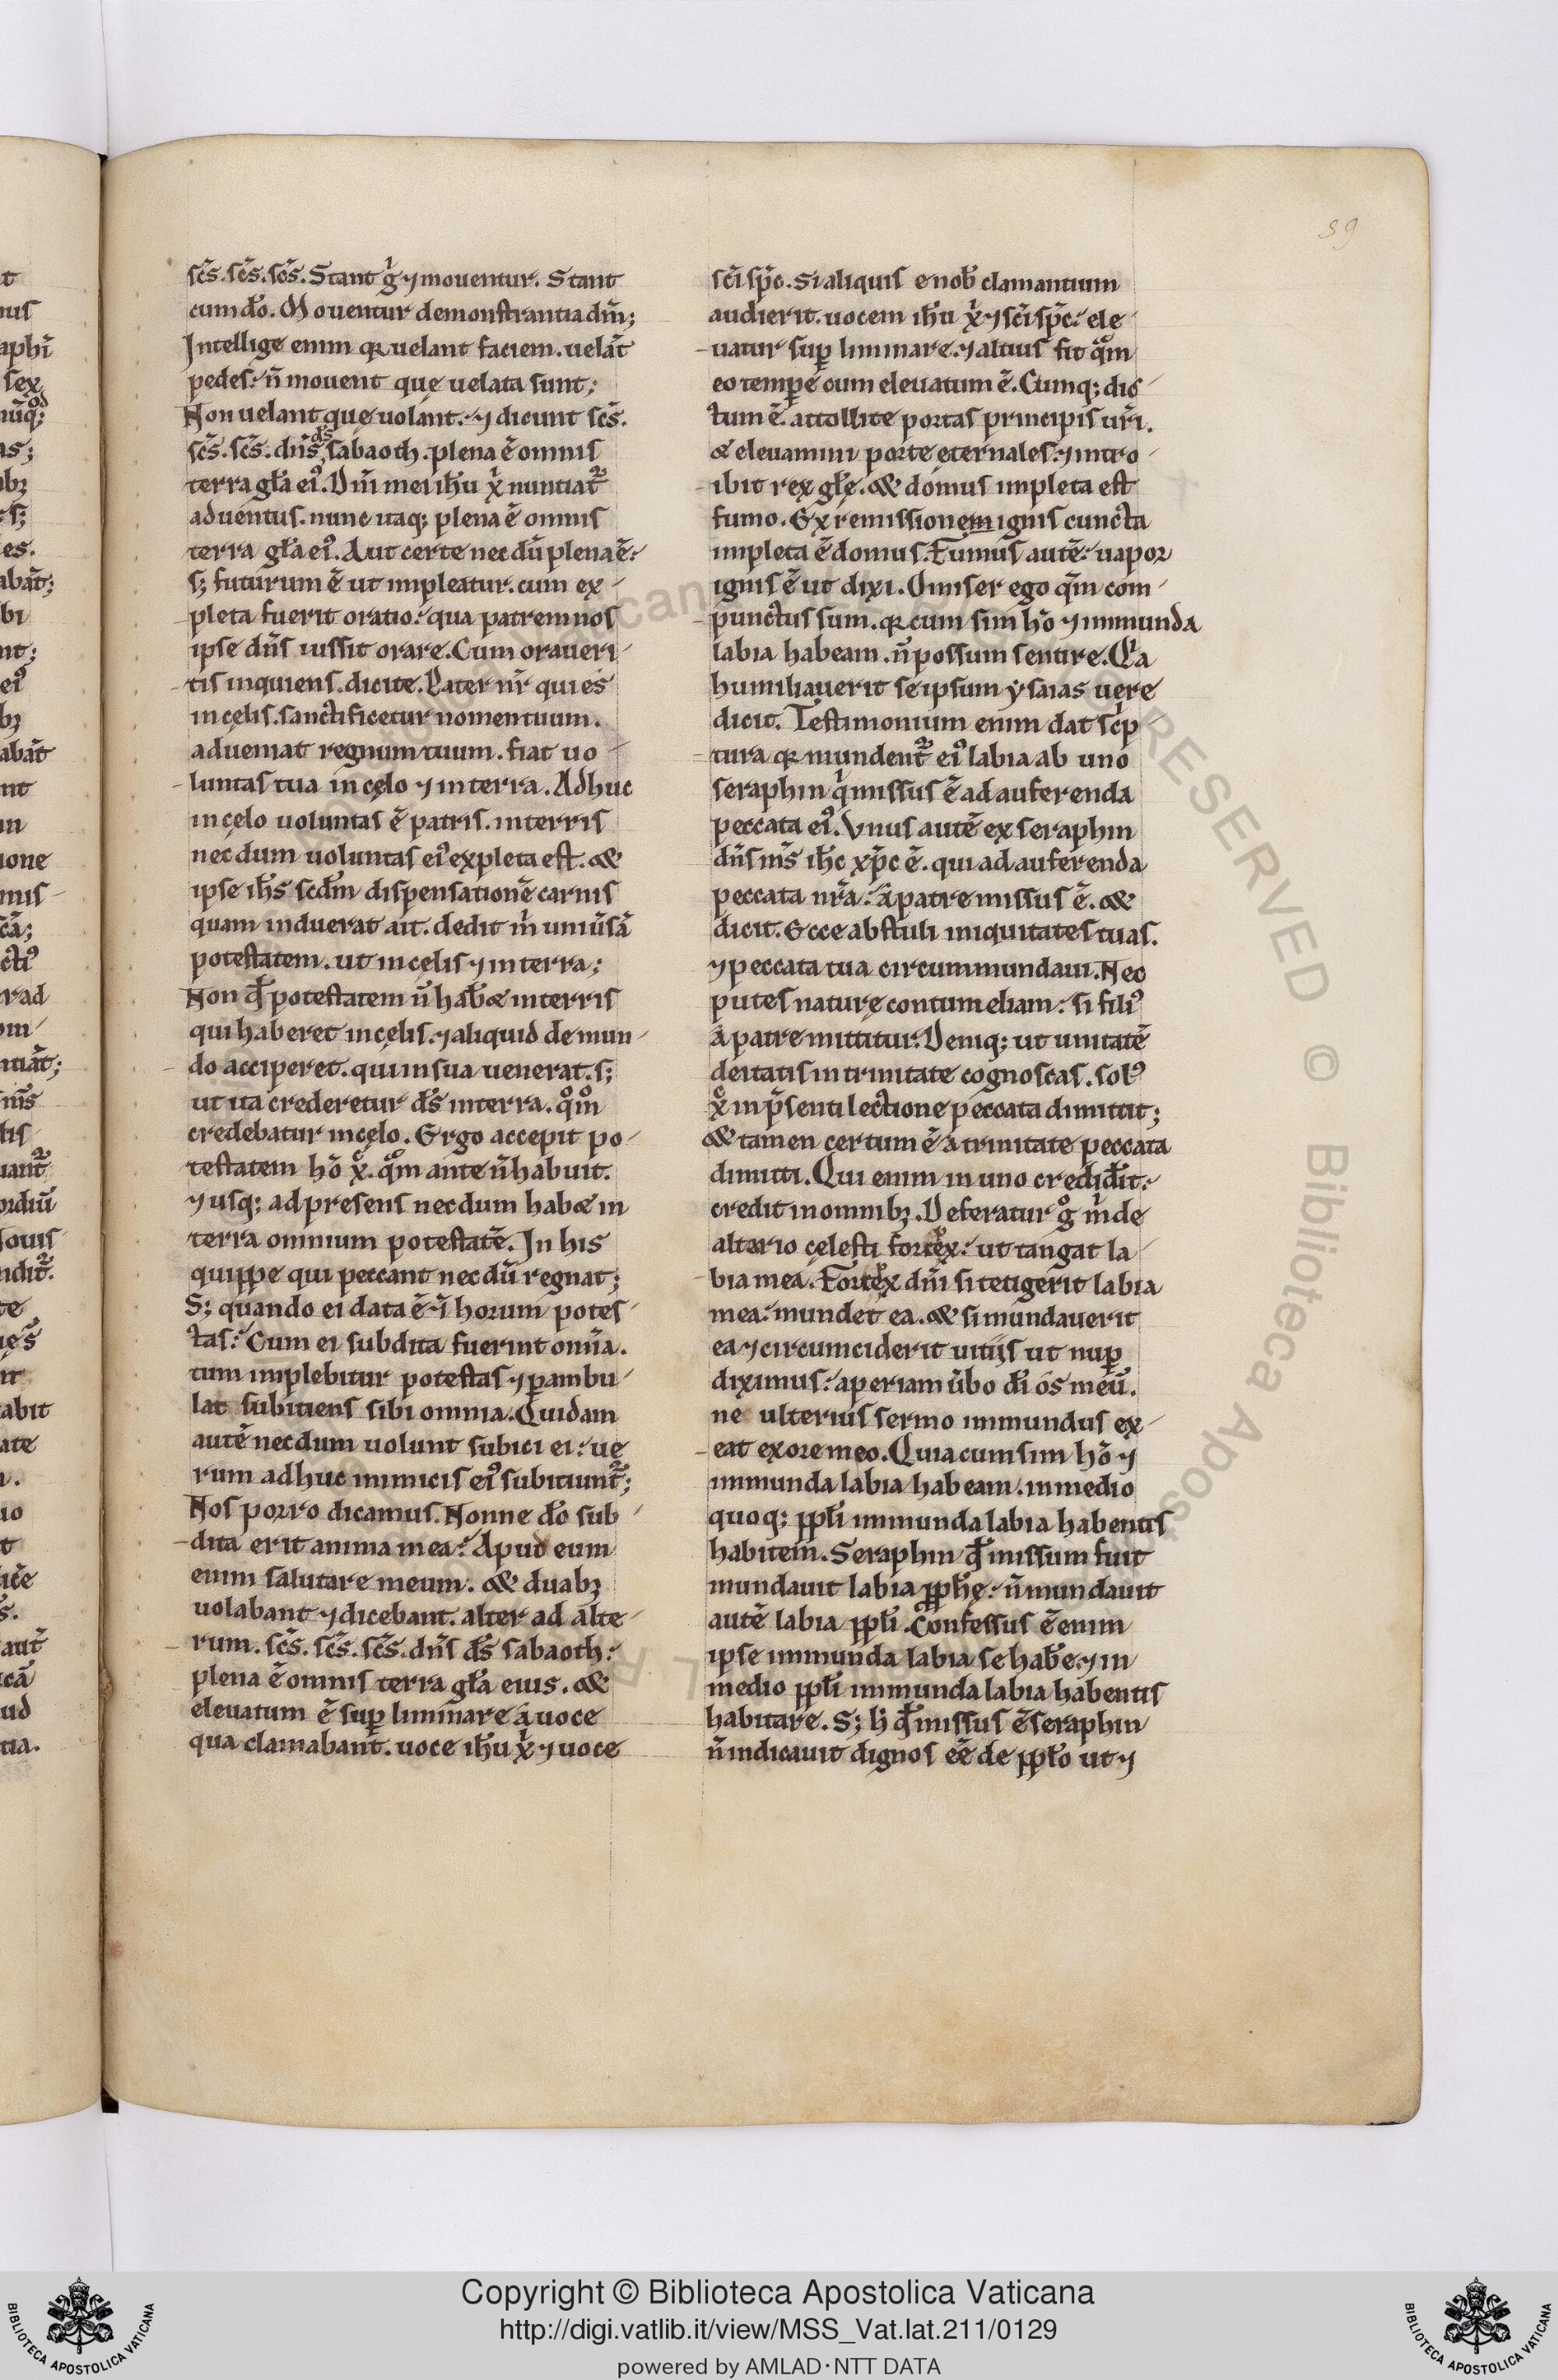 59
sc̄s. sc̄s. sc̄s. Stant gͥ ⁊ mouentur. Stant
cum do̅. Mouentur demonstrantia dm̅;
Intellige enim qꝛ uelant faciem. uela̅t
pedes: n̅ mouent quę uelata sunt;
Non uelant quę uolant: ⁊ dicunt sc̄s.
sc̄s. sc̄s. dn̅s ds̅ sabaoth. plena ē omnis
terra gl̅a eiꝰ. Dn̅i mei ih̅u xͥ nuntiat᷑
aduentus. nunc itaq; plena ē omnis
terra gl̅a eiꝰ. Aut certe nec du̅ plena ē:
s; futurum ē ut impleatur. cum ex-
pleta fuerit oratio: qua patrem nos
ipse dn̅s iussit orare. Cum oraueri-
tis inquiens. dicite. Pater nr̅ qui es
in cęlis. sanctificetur nomen tuum.
adueniat regnum tuum. fiat uo-
luntas tua in cęlo ⁊ in terra. Adhuc
in cęlo uoluntas ē patris. in terris
nec dum uoluntas eiꝰ expleta est. &
ipse ih̅s scd̅m dispensatione̅ carnis
quam induerat ait. dedit mͥ uniu̅sa̅
potestatem. ut in cęlis ⁊ in terra;
Non qd̅ potestatem n̅ hab& in terris
qui haberet in cęlis. ⁊ aliquid de mun-
do acciperet. qui in sua uenerat. s;
ut ita crederetur ds̅ in terra. qͦm̅
credebatur in cęlo. Ergo accepit po-
testatem ho̅ xc̅. qͦm ante n̅ habuit.
⁊ usq; ad presens nec dum hab& in
terra omnium potestate̅. In his
quippe qui peccant nec du̅ regnat;
S; quando ei data ē ⁊ i̅ horum potes-
tas: Cum ei subdita fuerint omn̅a.
tum implebitur potestas ⁊ p̲ambu-
lat subitiens sibi omnia. Quidam
aute̅ nec dum uolunt subici ei: ue
rum adhuc inimicis eiꝰ subitiunt᷑;
Nos porro dicamus. Nonne do̅ sub-
dita erit anima mea: Apud eum
enim salutare meum. & duabꝫ
uolabant ⁊ dicebant. alter ad alte-
rum. sc̄s. sc̄s. sc̄s. dn̅s ds̅ sabaoth:
plena ē omnis terra gl̅a eius. &
eleuatum ē sup̲ liminare a uoce
qua clamabant. uoce ih̅u xͥ ⁊ uoce
sc̅i sp̅c. Si aliquis e nob̅ clamantium
audierit. uocem ih̅u xͥ ⁊ sc̅i sp̅c: ele-
uatur sup̲ liminare. ⁊ altius fit qͣm
eo tempe̅ cum eleuatum ē. Cumq; dic-
tum ē. attollite portas principis ur̅i.
& eleuamini portę ęternales. ⁊ intro-
ibit rex gl̅ę. & domus impleta est
fumo. Ex remissionem ignis cuncta
impleta ē domus. Fumus aute̅: uapor
ignis ē ut dixi. O miser ego qm̅ com-
punctus sum. qꝛ cum sim ho̅ ⁊ immunda
labia habeam. n̅ possum sentire. Qͥa
humiliauerit se ipsum ysaias uere
dicit. Testimonium enim dat scͥp-
tura qꝛ mundent᷑ eiꝰ labia ab uno
seraphin qͥ missus ē ad auferenda
peccata eiꝰ. Vnus aute̅ ex seraphin
dn̅s ms̅ ih̅c xp̅c ē. qui ad auferenda
peccata nr̅a: a patre missus ē. &
dicit. Ecce abstuli iniquitates tuas.
⁊ peccata tua circummundaui. Nec
putes naturę contumeliam: si filiꝰ
a patre mittitur. Deniq; ut unitate̅
deitatis in trinitate cognoscas. solꝰ
xc̅ in p̅senti lectione peccata dimittit;
& tamen certum ē a trinitate peccata
dimitti. Qui enim in uno credid̅it:
credit in omnibꝫ. Deferatur gͦ mͥ de
altario cęlesti forcex: ut tangat la-
bia mea. Forcex dn̅i si tetigerit labia
mea: mundet ea. & si mundauerit
ea ⁊ circumciderit uitiis ut nup̲
diximus: aperiam u̅bo di̅ os meu̅.
ne ulterius sermo immundus ex-
eat ex ore meo. Quia cum sim ho̅ ⁊
immunda labia habeam. in medio
quoq; ppl̅i immunda labia habentis
habitem. Seraphin qd̅ missum fuit
mundauit labia pph̅ę: n̅ mundauit
aute̅ labia ppl̅i. Confessus ē enim
ipse immunda labia se hab̅e. ⁊ in
medio ppl̅i immunda labia habentis
habitare. S; hͥ qd̅ missus ē seraphin
n̅ indicauit dignos ee̅ de ppl̅o ut ⁊
Copyright © Biblioteca Apostolica Vaticana
http://digi.vatlib.it/view/MSS_Vat.lat.211/0129
powered by AMLAD·NTT DATA
BIBLIOTECA APOSTOLICA VATICANA
BIBLIOTECA APOSTOLICA VATICANA